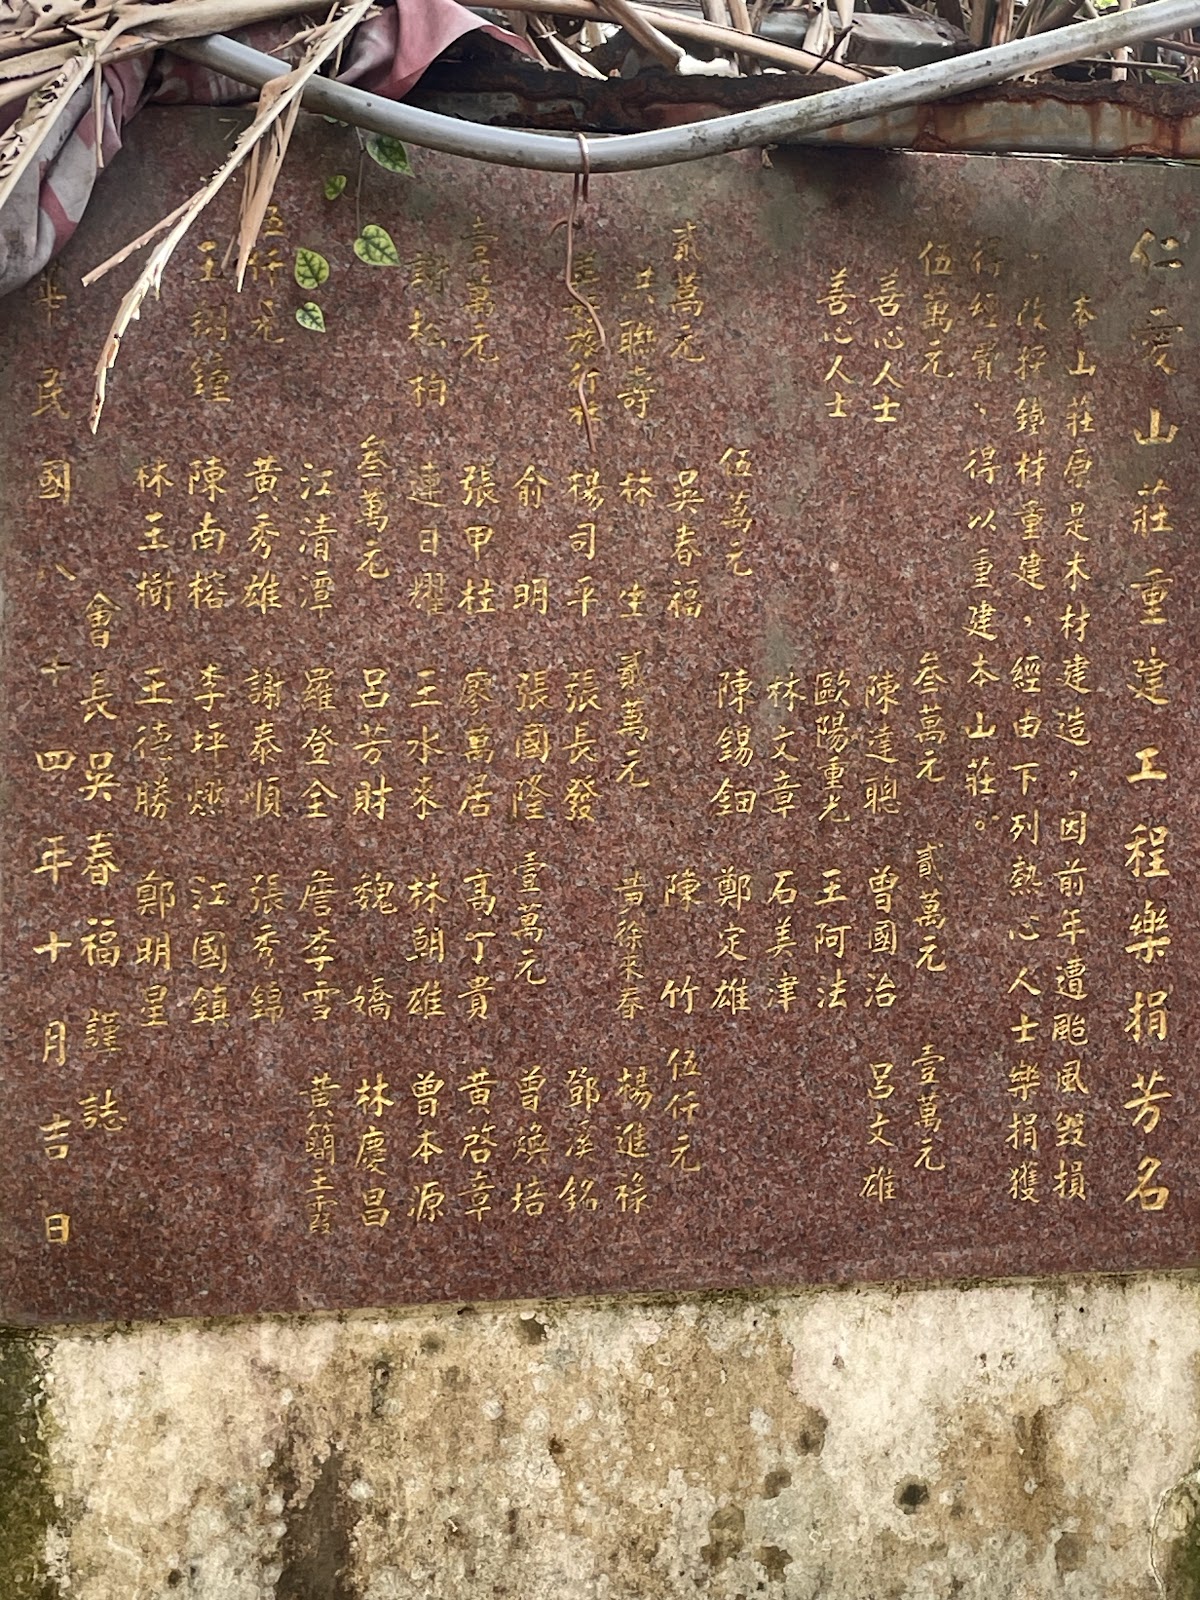 仁愛山莊重建工程樂捐芳名
本山莊原是木材建造，因前年遭颱風毀損
改採鐵材重建，經由下列熱心人士樂捐獲
得經費、得以重建本山莊。
伍萬元 叁萬元 貳萬元 壹萬元
善心人士 陳達聰 曾國治 呂文雄
善心人士 歐陽重光 王阿法
林文章 石美津
伍萬元 陳錫鈿 鄭定雄
貳萬元 吳春福 陳竹 伍仟元
洪聯壽 林生 貳萬元 黃徐来春 楊進祿
旅行社 楊司平 張長發 鄧溪銘
俞明 張國隆 壹萬元 曾煥培
壹萬元 張甲桂 廖萬居 高丁貴 黃啓章
謝松柏 連日耀 王水來 林朝雄 曾本源
叁萬元 呂芳財 魏嬌 林慶昌
江清潭 羅登全 詹李雪 黃蒳王霞
伍仟元 黃秀雄 謝泰順 張秀錦
王 鐘 陳南榕 李坪燃 江國鎮
林玉樹 王德勝 鄭明星
會長吳春福謹誌
華民國八十四年十月吉日